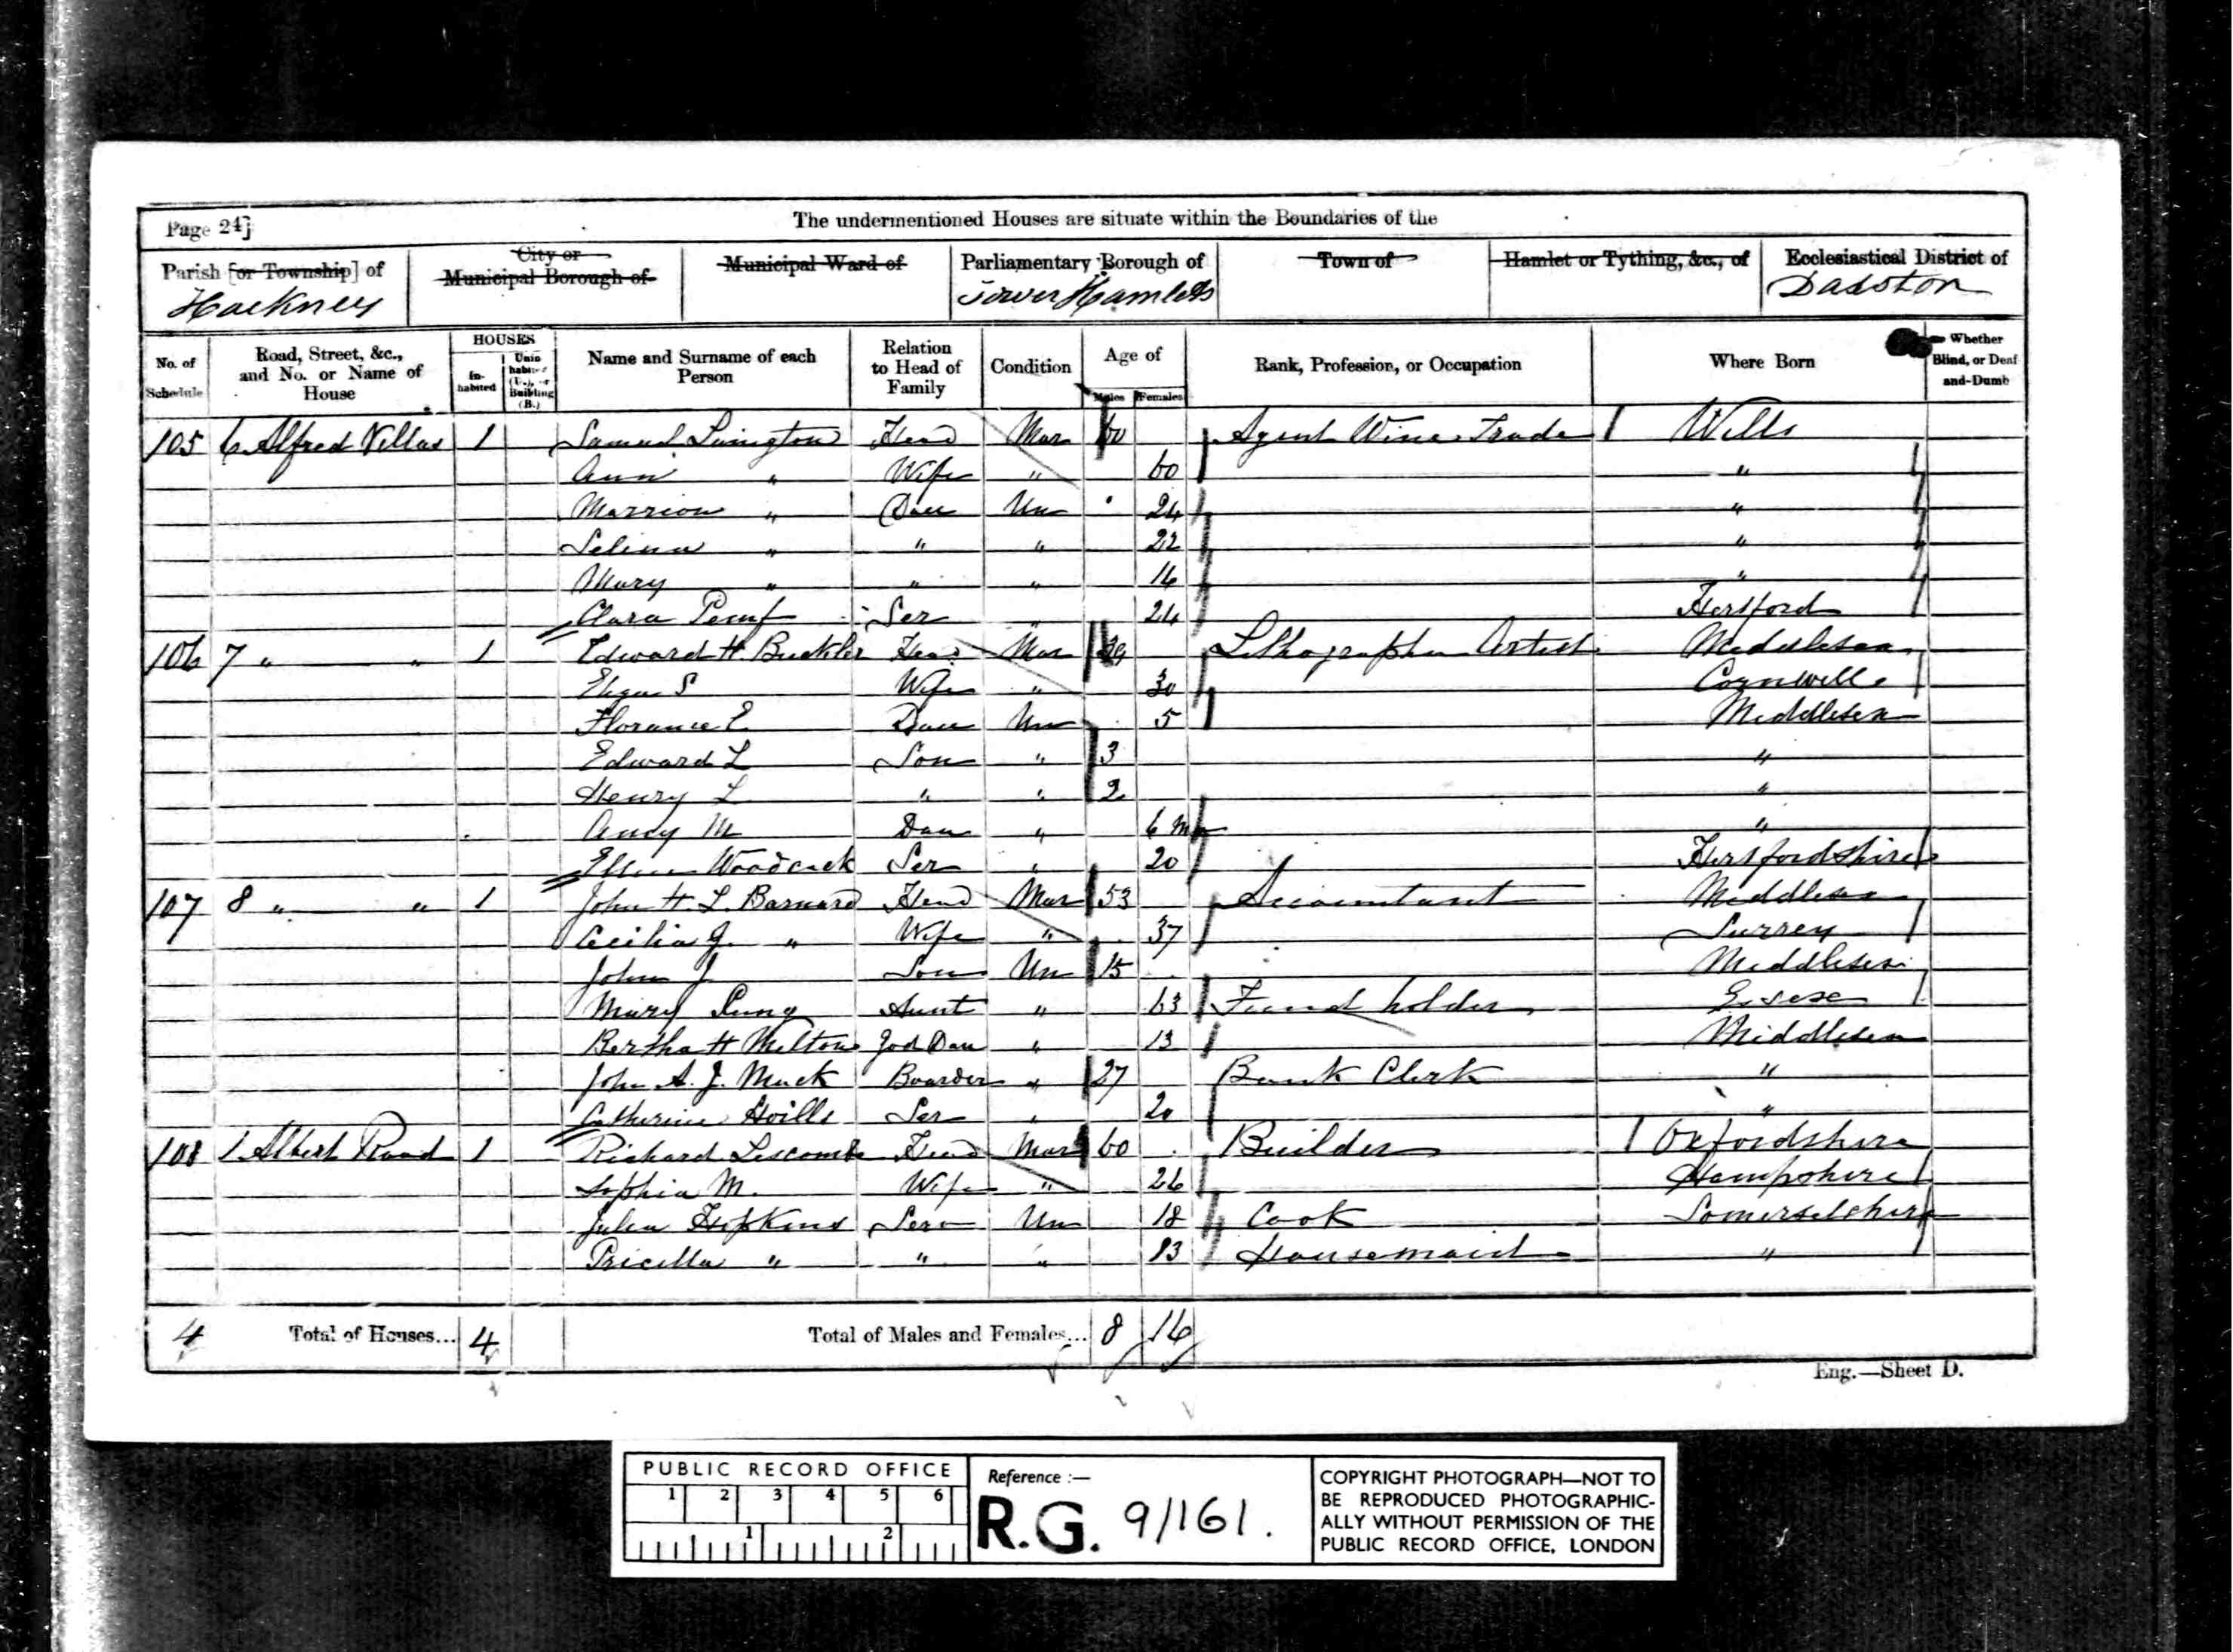 Page 24]
The undermentioned Houses are situate within the Boundaries of the
Parish [or Township] of Hackney
City or Municipal Borough of
Municipal Ward of
Parliamentary Borough of Tower Hamlets
Town of
Hamlet or Tything, &c., of
Ecclesiastical District of Dalston
No. of Schedule
Road, Street, &c., and No. or Name of House
HOUSES
In-habited
Uninhabited (U.), or Building (B.)
Name and Surname of each Person
Relation to Head of Family
Condition
Age of
Males Females
Rank, Profession, or Occupation
Where Born
Whether Blind, or Deaf-and-Dumb
105 6 Alfred Villas 1 Samuel Head Mar 60 Agent Wine Trade Wilts
Ann " Wife " 60 "
Marrion " Dau Un 24 "
Selina " " " 22 "
Mary " " " 16 "
Clara Ser " 24 Hertford
106 7 " " 1 Edward H. Buckler Head Mar 39 Lithographer Artist Middlesex
Eliza S Wife " 30 Cornwell
Florance E. Dau Un 5 Middlesex
Edward L Son " 3 "
Henry L " " 2 "
Amy M Dau " 6 m "
Ellen Woodcock Ser " 20 Hertfordshire
107 8 " " 1 John H. L. Barnard Head Mar 53 Accountant Middlesex
Cecilia J. " Wife " 37 Surrey
John J Son Un 15 Middlesex
Mary Aunt " 63 Fund holder Essex
Bertha H Melton God Dau " 13 Middlesex
John A. J. Muck Boarder " 27 Bank Clerk "
Catherine Ser " 20 "
108 1 Albert Road 1 Richard Liscombe Head Mar 60 Builder Oxfordshire
Sophia M. Wife " 26 Hampshire
Julia Hopkins Serv Un 18 Cook Somersetshire
Pricilla " " " 13 Housemaid "
4 Total of Houses... 4 Total of Males and Females... 8 16
Eng.—Sheet D.
PUBLIC RECORD OFFICE
1 2 3 4 5 6
1 2
Reference :—
R.G. 9/161.
COPYRIGHT PHOTOGRAPH—NOT TO
BE REPRODUCED PHOTOGRAPHIC-
ALLY WITHOUT PERMISSION OF THE
PUBLIC RECORD OFFICE, LONDON